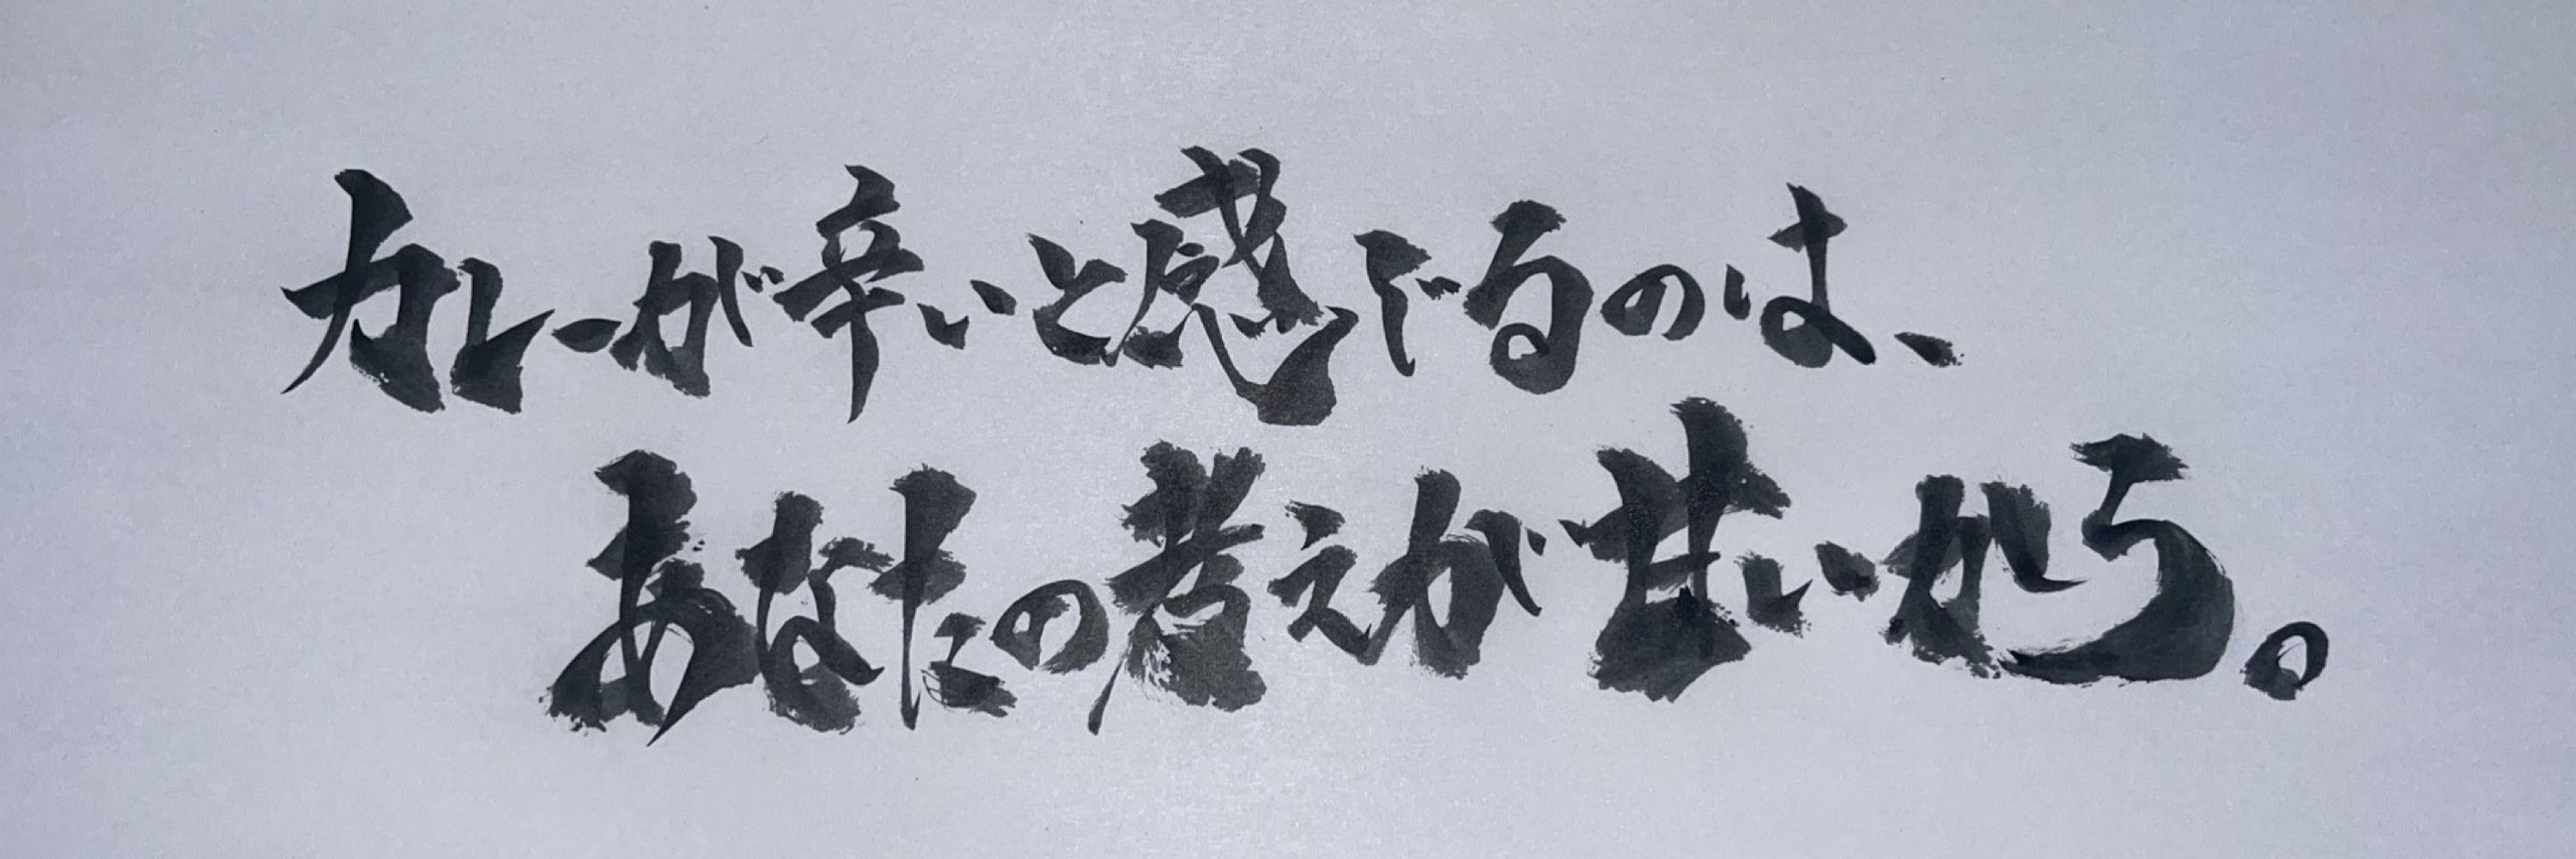 カレーが辛いと感じるのは、
あなたの考えが甘いから。